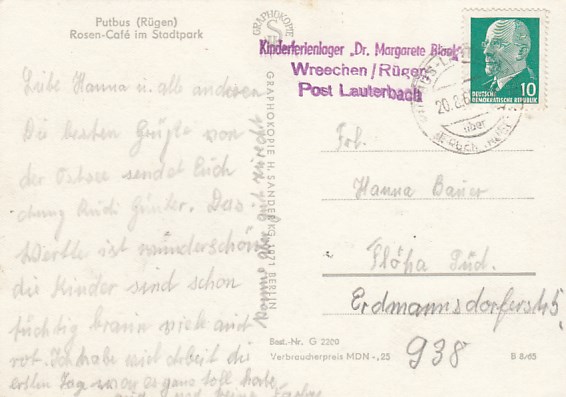 Putbus (Rügen)
Rosen-Café im Stadtpark
Liebe Hanna u. all anderen
Die besten Grüße von
der Ostsee sendet Euch
Rudi Günter. Das
Wetter ist wunderschön
die Kinder sind schon
tüchtig braun
rot. Ich habe viel Arbeit die
ersten Tage war es ganz toll habe
und keine
GRAPHOKOPIE
GRAPHOKOPIE H. SANDER KG. 1071 BERLIN
Kinderferienlager „Dr. Margarete Blank“
Wreechen/Rügen
Post Lauterbach
DEUTSCHE
DEMOKRATISCHE REPUBLIK
10
über
Frl.
Hanna Bauer
Flöha Süd.
Erdmannsdorferstr 5
938
Best.-Nr. G 2200
Verbraucherpreis MDN -,25
B 8/65